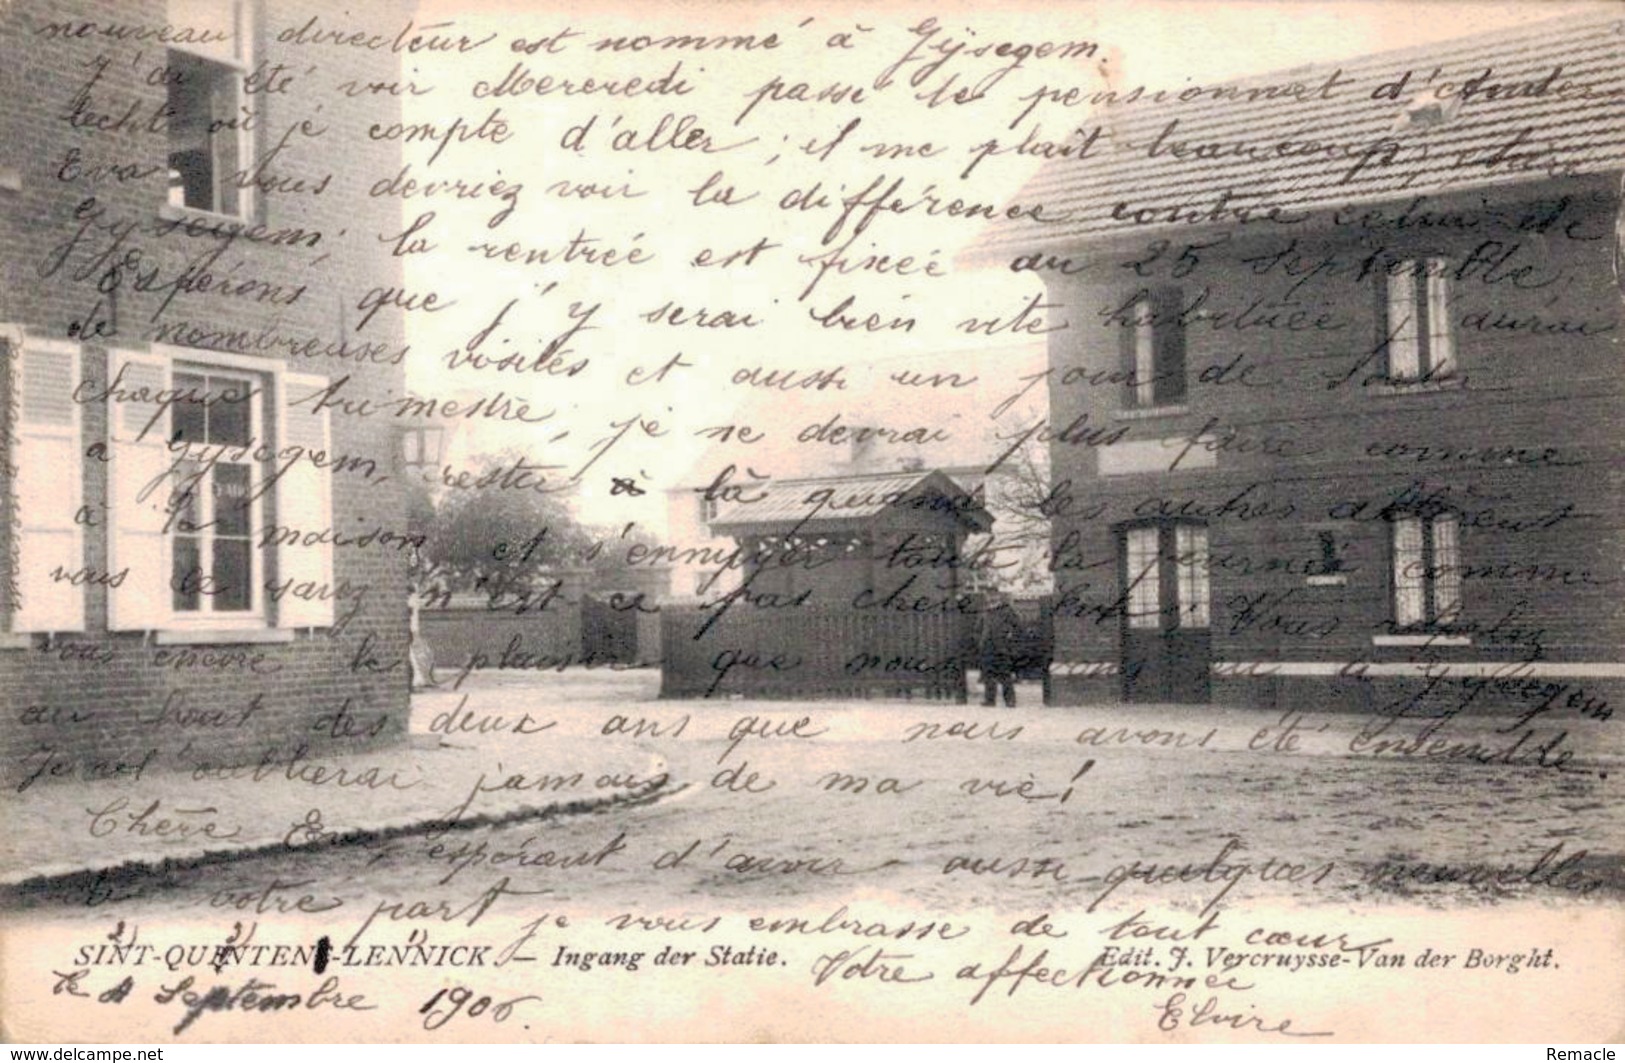 nouveau directeur est nommé à Gÿsegem.
J'ai été voir Mercredi passé le pensionnat d'Ander
lecht où je compte d'aller ; il me plaît beaucoup, chère
Eva vous devriez voir la différence contre celui de
Gysegem; la rentrée est fixée au 25 Septembre,
Espérons que j'y serai bien vite habituée, j'aurai
de nombreuses visites et aussi un jour de sortie
chaque trimestre, je ne devrai plus faire comme
à Gysegem, rester à là quand les autres allèrent
à la maison et s'ennuyer toute la journée comme
vous le savez n'est-ce pas chère Eva; Vous rappelez
vous encore le plaisir que nous avons eu à Gysegem
au bout des deux ans que nous avons été ensemble.
Je ne l'oublierai jamais de ma vie!
Chère Eva, espérant d'avoir aussi quelques nouvelles
de votre part je vous embrasse de tout cœur
2) 3) 1)
SINT-QUINTENS-LENNICK. — Ingang der Statie. Edit. J. Vercruysse-Van der Borght.
Votre affectionnée
le 4 Septembre 1906. Elvire
www.delcampe.net Remacle